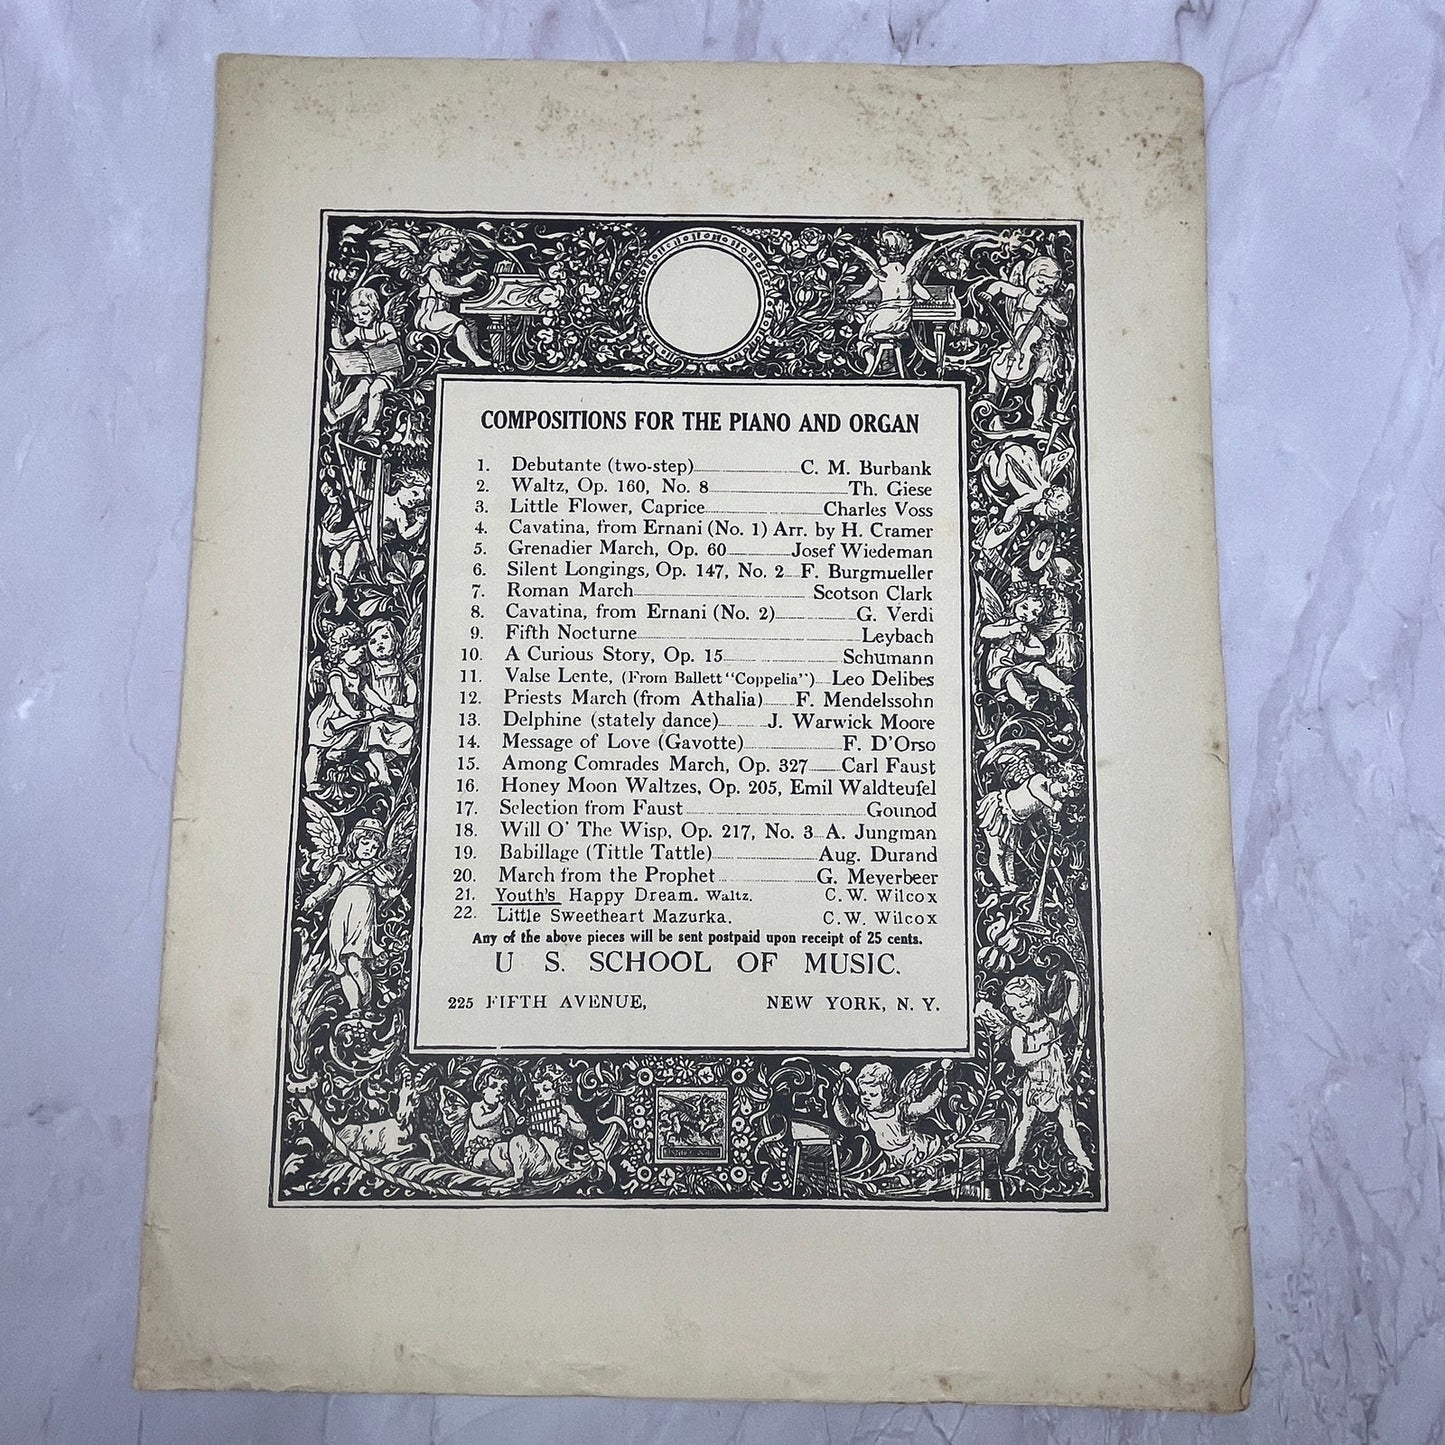 COMPOSITIONS FOR THE PIANO AND ORGAN
1. Debutante (two-step) C. M. Burbank
2. Waltz, Op. 160, No. 8 Th. Giese
3. Little Flower, Caprice Charles Voss
4. Cavatina, from Ernani (No. 1) Arr. by H. Cramer
5. Grenadier March, Op. 60 Josef Wiedeman
6. Silent Longings, Op. 147, No. 2 F. Burgmueller
7. Roman March Scotson Clark
8. Cavatina, from Ernani (No. 2) G. Verdi
9. Fifth Nocturne Leybach
10. A Curious Story, Op. 15 Schumann
11. Valse Lente, (From Ballett "Coppelia") Leo Delibes
12. Priests March (from Athalia) F. Mendelssohn
13. Delphine (stately dance) J. Warwick Moore
14. Message of Love (Gavotte) F. D'Orso
15. Among Comrades March, Op. 327 Carl Faust
16. Honey Moon Waltzes, Op. 205, Emil Waldteufel
17. Selection from Faust Gounod
18. Will O' The Wisp, Op. 217, No. 3 A. Jungman
19. Babillage (Tittle Tattle) Aug. Durand
20. March from the Prophet G. Meyerbeer
21. Youth's Happy Dream. Waltz. C. W. Wilcox
22. Little Sweetheart Mazurka. C. W. Wilcox
Any of the above pieces will be sent postpaid upon receipt of 25 cents.
U S. SCHOOL OF MUSIC.
225 FIFTH AVENUE, NEW YORK, N. Y.